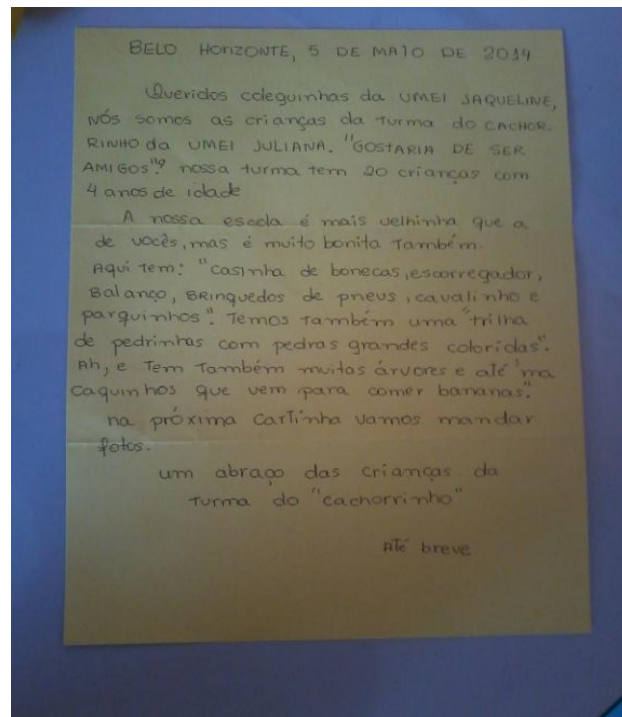 BELO HORIZONTE, 5 DE MAIO DE 2014
Queridos coleguinhas da UMEI JAQUELINE,
nós somos as crianças da turma do CACHOR-
RINHO da UMEI JULIANA. "GOSTARIA DE SER
AMIGOS"? nossa turma tem 20 crianças com
4 anos de idade
A nossa escola é mais velhinha que a
de vocês, mas é muito bonita também.
Aqui tem: "casinha de bonecas, escorregador,
Balanço, BRinquedos de pneus, cavalinho e
parquinhos". Temos também uma "trilha
de pedrinhas com pedras grandes coloridas".
Ah, e Tem Também muitas árvores e até "ma
caquinhos que vem para comer bananas".
na próxima cartinha vamos mandar
fotos.
um abraço das crianças da
turma do "cachorrinho"
Até breve